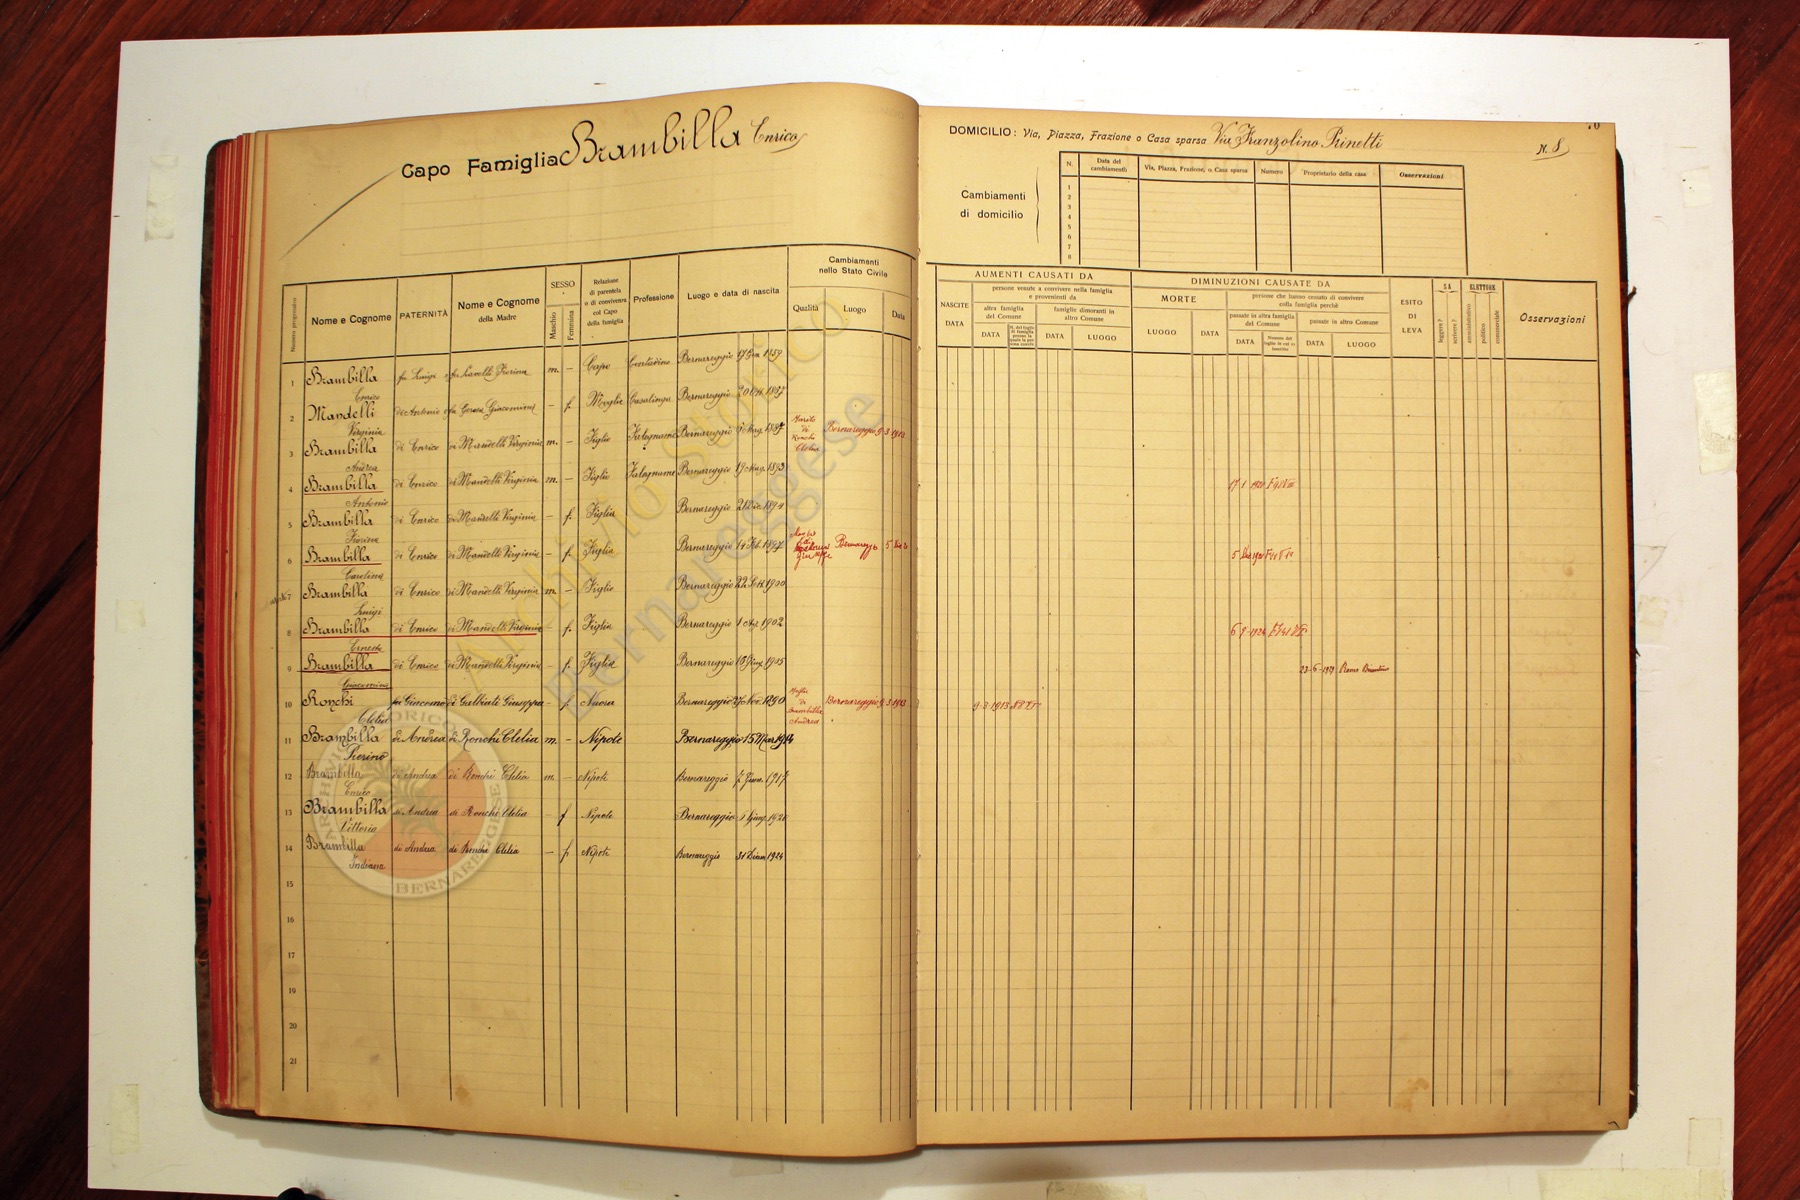 Capo Famiglia Brambilla Enrico
DOMICILIO: Via, Piazza, Frazione o Casa sparsa Via Franzolino Prinetti
N. 8
70
Cambiamenti
di domicilio
N. Data del cambiamento Via, Piazza, Frazione, o Casa sparsa Numero Proprietario della casa Osservazioni
1
2
3
4
5
6
7
8
Numero progressivo
Nome e Cognome
PATERNITÀ
Nome e Cognome
della Madre
SESSO
Maschio Femmina
Relazione
di parentela
o di convivenza
col Capo
della famiglia
Professione
Luogo e data di nascita
Cambiamenti
nello Stato Civile
Qualità Luogo Data
AUMENTI CAUSATI DA
NASCITE
DATA
persone venute a convivere nella famiglia
e provenienti da
altra famiglia
del Comune
DATA
famiglie dimoranti in
altro Comune
DATA LUOGO
DIMINUZIONI CAUSATE DA
MORTE
LUOGO DATA
persone che hanno cessato di convivere
colla famiglia perchè
passate in altra famiglia
del Comune
DATA
passate in altro Comune
DATA LUOGO
ESITO
DI
LEVA
SA
leggere? scrivere?
ELETTORE
amministrativo politico commerciale
Osservazioni
1 Brambilla Enrico fu Luigi fu Lavelli Fiorina m. – Capo Contadino Bernareggio 17 1859
2 Mandelli Virginia di Antonio Giacomina – f. Moglie Casalinga Bernareggio 20
3 Brambilla Andrea di Enrico di Mandelli Virginia m. – Figlio Falegname Bernareggio 1887 Marito di Ronchi Clelia Bernareggio 9 3 1913
4 Brambilla Antonio di Enrico di Mandelli Virginia m. – Figlio Falegname Bernareggio 19 1893 17 1
5 Brambilla Fiorina di Enrico di Mandelli Virginia – f. Figlia Bernareggio 21 Dic. 1894
6 Brambilla Carolina di Enrico di Mandelli Virginia – f. Figlia Bernareggio 14 Feb. 1897 Giuseppe Bernareggio 5
7 Brambilla Luigi di Enrico di Mandelli Virginia m. – Figlio Bernareggio 22 Ott. 1900
8 Brambilla Ernesta di Enrico di Mandelli Virginia – f. Figlia Bernareggio 1 Ag. 1902 6 9 1924
9 Brambilla Giacomina di Enrico di Mandelli Virginia – f. Figlia Bernareggio 18 Giug. 1905 23-6-1929
10 Ronchi Clelia fu Giacomo di Galbiati Giuseppa – f. Nuora Bernareggio 27 Nov. 1890 Moglie di Brambilla Andrea Bernareggio 9 3 1913 9-3-1913
11 Brambilla Pierino di Andrea di Ronchi Clelia m. – Nipote Bernareggio 15 Mar 1914
12 Brambilla Enrico di Andrea di Ronchi Clelia m. – Nipote Bernareggio 7 1917
13 Brambilla Vittoria di Andrea di Ronchi Clelia – f Nipote Bernareggio 1 Giug. 1920
14 Brambilla Indiana di Andrea di Ronchi Clelia – f. Nipote Bernareggio 31 1924
15
16
17
18
19
20
21
Archivio Storico
Bernareggese
ARCHIVIO STORICO
BERNAREGGESE